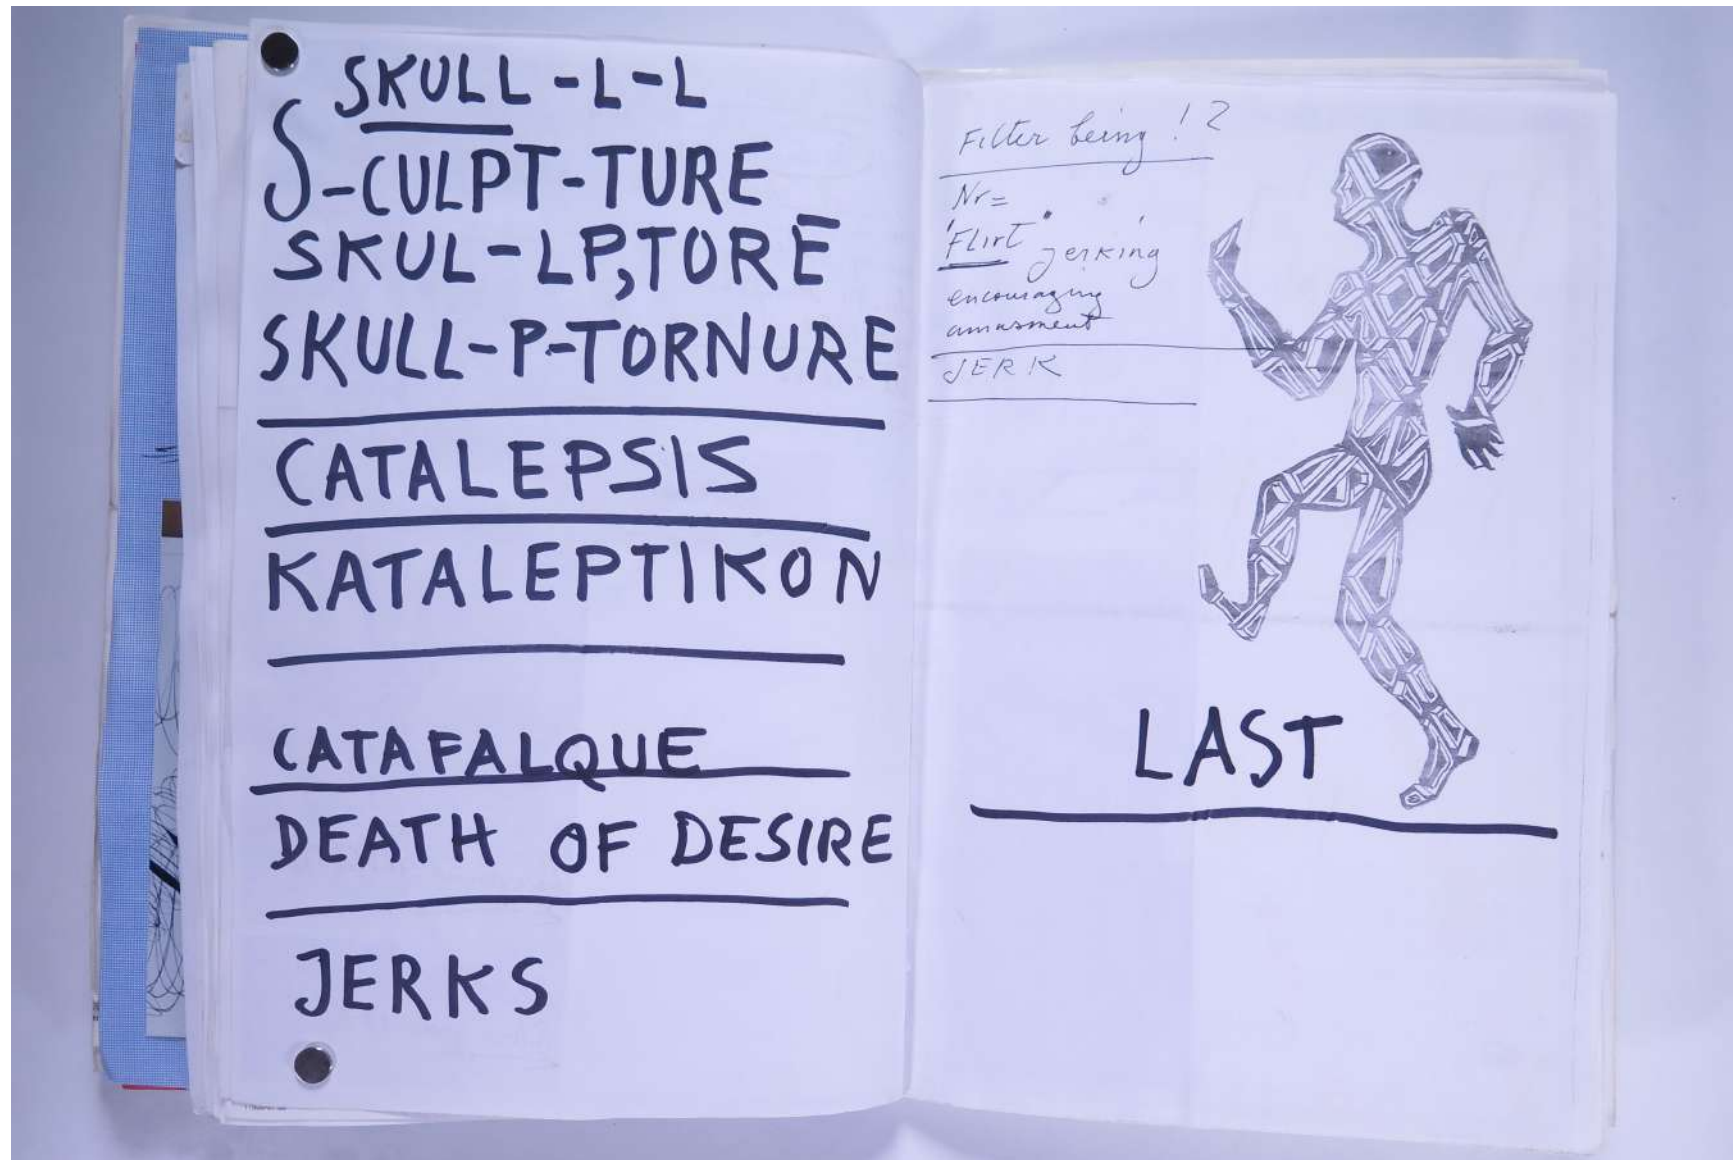 SKULL-L-L
S-CULPT-TURE
SKUL-LP,TORE
SKULL-P-TORNURE
CATALEPSIS
KATALEPTIKON
CATAFALQUE
DEATH OF DESIRE
JERKS
Filter being !?
Nr=
Flirt jerking
encouraging
amusment
JERK
LAST